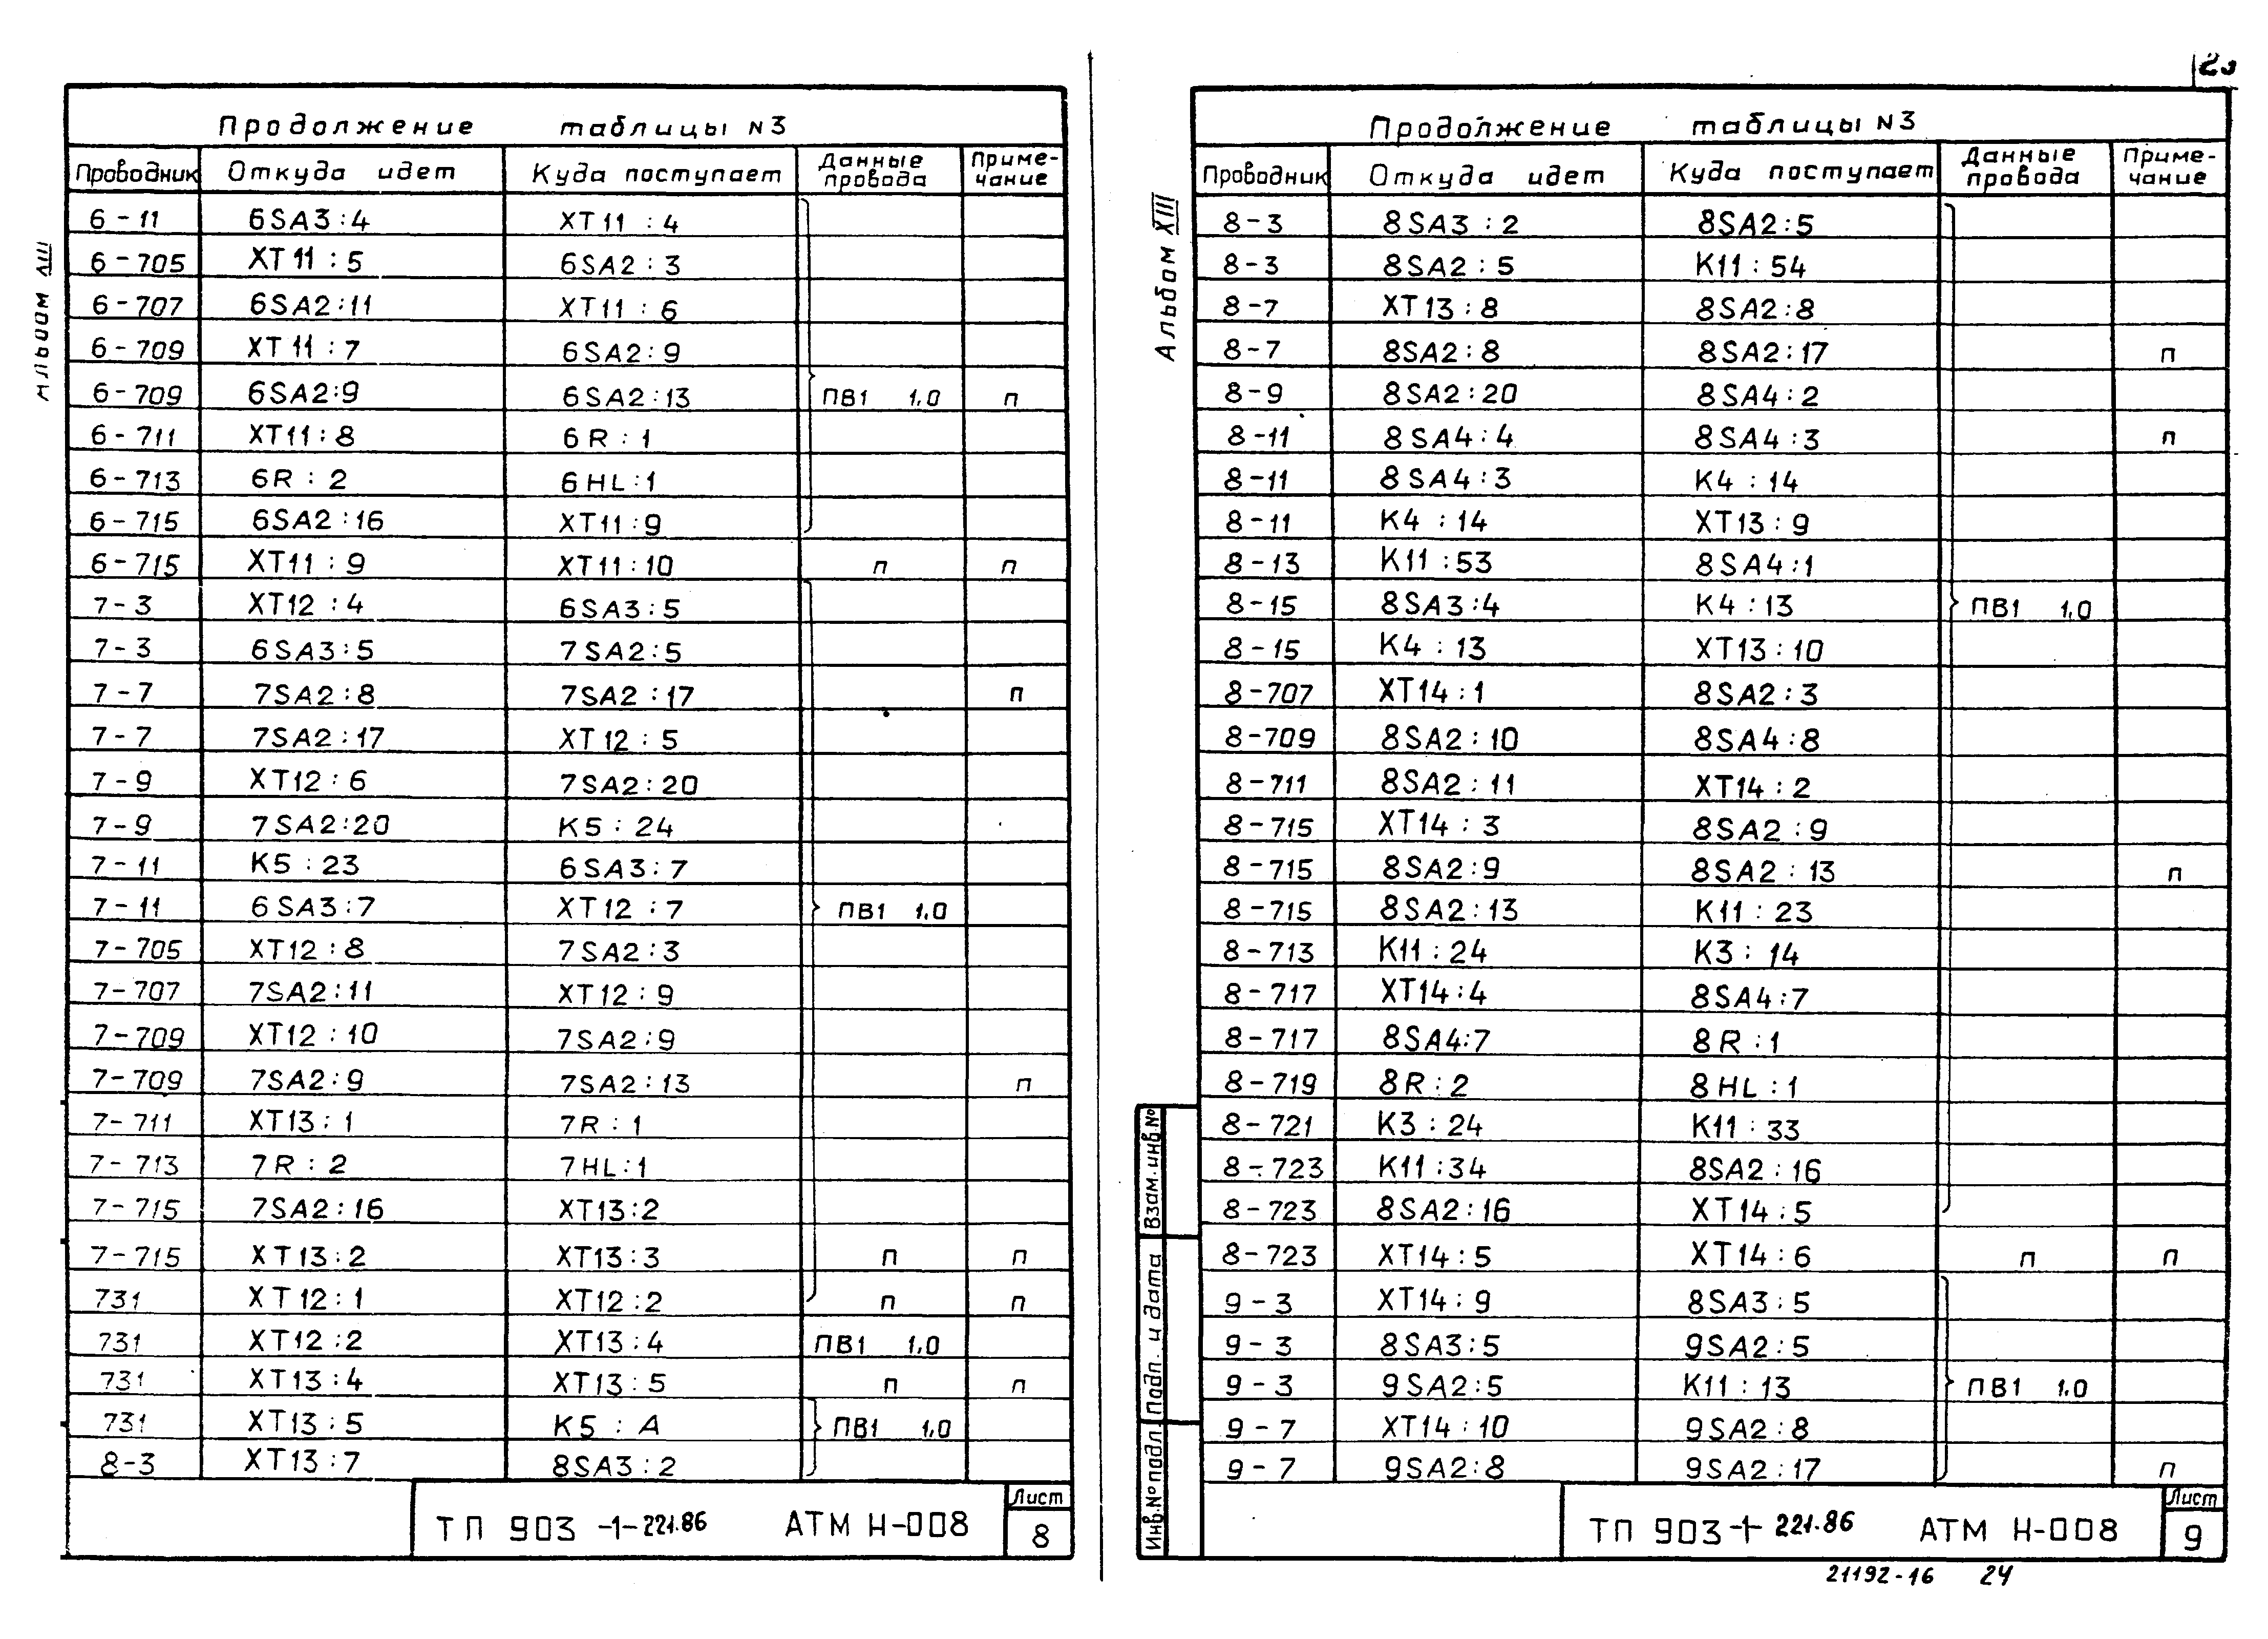 23
Альбом XIII
Продолжение таблицы N3
Проводник Откуда идет Куда поступает Данные провода Приме-чание
6-11 6SA3:4 XT11:4
6-705 XT11:5 6SA2:3
6-707 6SA2:11 XT11:6
6-709 XT11:7 6SA2:9
6-709 6SA2:9 6SA2:13 ПВ1 1,0 п
6-711 XT11:8 6R:1
6-713 6R:2 6HL:1
6-715 6SA2:16 XT11:9
6-715 XT11:9 XT11:10 п п
7-3 XT12:4 6SA3:5
7-3 6SA3:5 7SA2:5
7-7 7SA2:8 7SA2:17 п
7-7 7SA2:17 XT12:5
7-9 XT12:6 7SA2:20
7-9 7SA2:20 K5:24
7-11 K5:23 6SA3:7
7-11 6SA3:7 XT12:7 ПВ1 1,0
7-705 XT12:8 7SA2:3
7-707 7SA2:11 XT12:9
7-709 XT12:10 7SA2:9
7-709 7SA2:9 7SA2:13 п
7-711 XT13:1 7R:1
7-713 7R:2 7HL:1
7-715 7SA2:16 XT13:2
7-715 XT13:2 XT13:3 п п
731 XT12:1 XT12:2 п п
731 XT12:2 XT13:4 ПВ1 1,0
731 XT13:4 XT13:5 п п
731 XT13:5 K5:A ПВ1 1,0
8-3 XT13:7 8SA3:2
ТП 903-1-221.86 АТМ Н-008 Лист 8
Альбом XIII
Продолжение таблицы N3
Проводник Откуда идет Куда поступает Данные провода Приме-чание
8-3 8SA3:2 8SA2:5
8-3 8SA2:5 K11:54
8-7 XT13:8 8SA2:8
8-7 8SA2:8 8SA2:17 п
8-9 8SA2:20 8SA4:2
8-11 8SA4:4 8SA4:3 п
8-11 8SA4:3 K4:14
8-11 K4:14 XT13:9
8-13 K11:53 8SA4:1
8-15 8SA3:4 K4:13 ПВ1 1,0
8-15 K4:13 XT13:10
8-707 XT14:1 8SA2:3
8-709 8SA2:10 8SA4:8
8-711 8SA2:11 XT14:2
8-715 XT14:3 8SA2:9
8-715 8SA2:9 8SA2:13 п
8-715 8SA2:13 K11:23
8-713 K11:24 K3:14
8-717 XT14:4 8SA4:7
8-717 8SA4:7 8R:1
8-719 8R:2 8HL:1
8-721 K3:24 K11:33
8-723 K11:34 8SA2:16
8-723 8SA2:16 XT14:5
8-723 XT14:5 XT14:6 п п
9-3 XT14:9 8SA3:5
9-3 8SA3:5 9SA2:5
9-3 9SA2:5 K11:13 ПВ1 1,0
9-7 XT14:10 9SA2:8
9-7 9SA2:8 9SA2:17 п
Взам.инв.№
Подп. и дата
Инв.№подл.
ТП 903-1-221.86 АТМ Н-008 Лист 9
21192-16 24